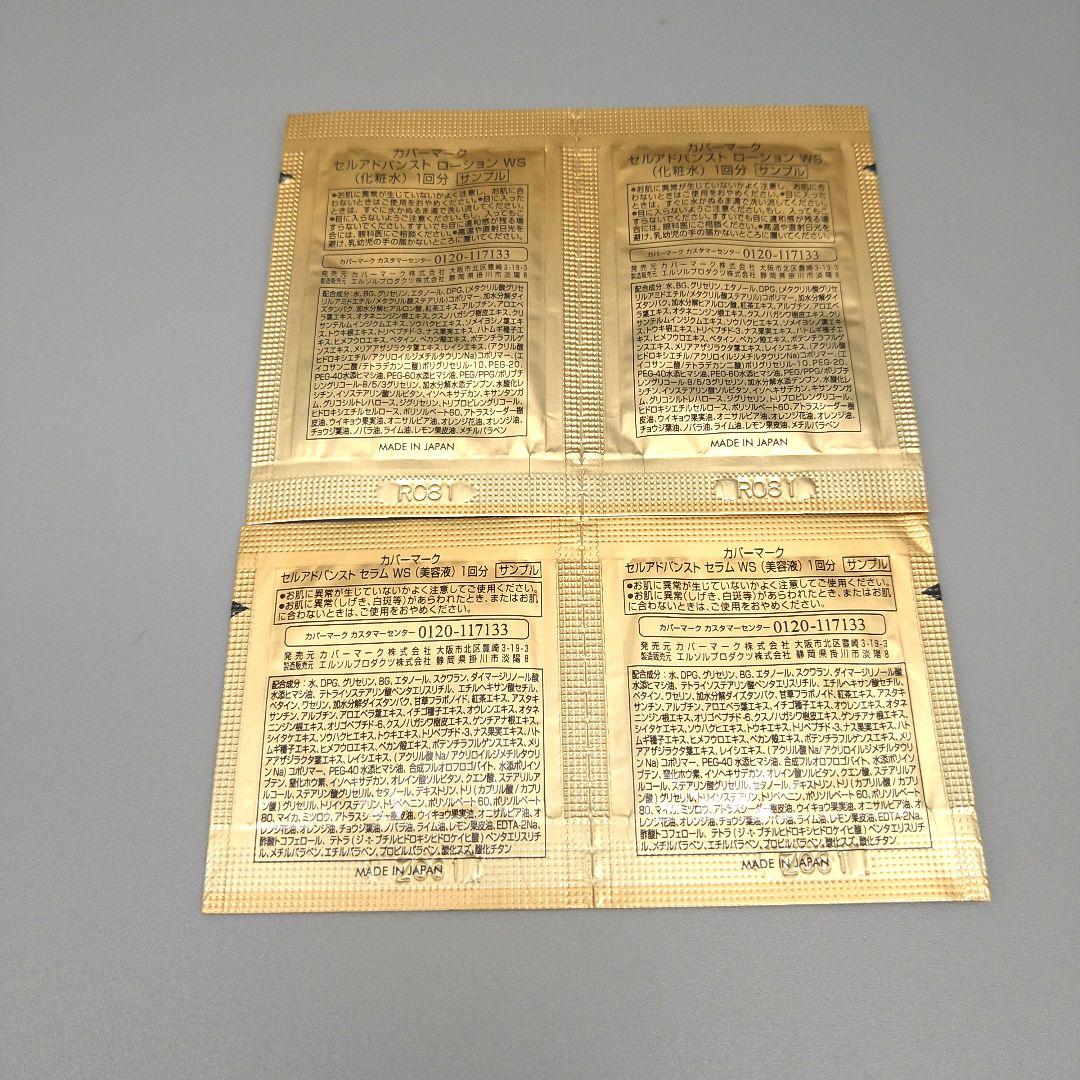 カバーマーク
セルアドバンスト ローション WS
（化粧水）1回分 サンプル
●お肌に異常が生じていないかよく注意し、お肌に合
わないときはご使用をおやめください。●目に入った
ときは、すぐに水かぬるま湯で洗い流してください。
●目に入らないようご注意ください。もし、入ってもこ
すらないでください。すすいでも目に違和感が残る場
合には、眼科医にご相談ください。●高温や直射日光を
避け、乳幼児の手の届かないところに置いてください。
カバーマーク カスタマーセンター 0120-117133
発売元 カバーマーク株式会社 大阪市北区豊崎3-19-3
製造販売元 エルソルプロダクツ株式会社 静岡県掛川市淡陽8
配合成分：水、BG、グリセリン、エタノール、DPG、(メタクリル酸グリセ
リルアミドエチル/メタクリル酸ステアリル)コポリマー、加水分解ダイ
ズタンパク、加水分解ヒアルロン酸、紅茶エキス、アルブチン、アロエベ
ラ葉エキス、オタネニンジン根エキス、クスノハガシワ樹皮エキス、クリ
サンテルムインジクムエキス、ソウハクヒエキス、ソメイヨシノ葉エキ
ス、トウキ根エキス、トリペプチド-3、ナス果実エキス、ハトムギ種子エ
キス、ヒメフウロエキス、ベタイン、ペカン殻エキス、ポテンチラフルゲ
ンスエキス、メリアアザジラクタ葉エキス、レイシエキス、(アクリル酸
ヒドロキシエチル/アクリロイルジメチルタウリンNa)コポリマー、(エ
イコサン二酸/テトラデカン二酸)ポリグリセリル-10、PEG-20、
PEG-40水添ヒマシ油、PEG-60水添ヒマシ油、PEG/PPG/ポリブチ
レングリコール-8/5/3グリセリン、加水分解水添デンプン、水酸化レ
シチン、イソステアリン酸ソルビタン、イソヘキサデカン、キサンタンガ
ム、グリコシルトレハロース、ジグリセリン、トリプロピレングリコール、
ヒドロキシエチルセルロース、ポリソルベート60、アトラスシーダー樹
皮油、ウイキョウ果実油、オニサルビア油、オレンジ花油、オレンジ油、
チョウジ葉油、ノバラ油、ライム油、レモン果皮油、メチルパラベン
MADE IN JAPAN
R081
カバーマーク
セルアドバンスト ローション WS
（化粧水）1回分 サンプル
●お肌に異常が生じていないかよく注意し、お肌に合
わないときはご使用をおやめください。●目に入った
ときは、すぐに水かぬるま湯で洗い流してください。
●目に入らないようご注意ください。もし、入ってもこ
すらないでください。すすいでも目に違和感が残る場
合には、眼科医にご相談ください。●高温や直射日光を
避け、乳幼児の手の届かないところに置いてください。
カバーマーク カスタマーセンター 0120-117133
発売元 カバーマーク株式会社 大阪市北区豊崎3-19-3
製造販売元 エルソルプロダクツ株式会社 静岡県掛川市淡陽8
配合成分：水、BG、グリセリン、エタノール、DPG、(メタクリル酸グリセ
リルアミドエチル/メタクリル酸ステアリル)コポリマー、加水分解ダイ
ズタンパク、加水分解ヒアルロン酸、紅茶エキス、アルブチン、アロエベ
ラ葉エキス、オタネニンジン根エキス、クスノハガシワ樹皮エキス、クリ
サンテルムインジクムエキス、ソウハクヒエキス、ソメイヨシノ葉エキ
ス、トウキ根エキス、トリペプチド-3、ナス果実エキス、ハトムギ種子エ
キス、ヒメフウロエキス、ベタイン、ペカン殻エキス、ポテンチラフルゲ
ンスエキス、メリアアザジラクタ葉エキス、レイシエキス、(アクリル酸
ヒドロキシエチル/アクリロイルジメチルタウリンNa)コポリマー、(エ
イコサン二酸/テトラデカン二酸)ポリグリセリル-10、PEG-20、
PEG-40水添ヒマシ油、PEG-60水添ヒマシ油、PEG/PPG/ポリブチ
レングリコール-8/5/3グリセリン、加水分解水添デンプン、水酸化レ
シチン、イソステアリン酸ソルビタン、イソヘキサデカン、キサンタンガ
ム、グリコシルトレハロース、ジグリセリン、トリプロピレングリコール、
ヒドロキシエチルセルロース、ポリソルベート60、アトラスシーダー樹
皮油、ウイキョウ果実油、オニサルビア油、オレンジ花油、オレンジ油、
チョウジ葉油、ノバラ油、ライム油、レモン果皮油、メチルパラベン
MADE IN JAPAN
R081
カバーマーク
セルアドバンスト セラム WS（美容液）1回分 サンプル
●お肌に異常が生じていないかよく注意してご使用ください。
●お肌に異常(しげき、白斑等)があらわれたとき、またはお肌
に合わないときは、ご使用をおやめください。
カバーマーク カスタマーセンター 0120-117133
発売元 カバーマーク株式会社 大阪市北区豊崎3-19-3
製造販売元 エルソルプロダクツ株式会社 静岡県掛川市淡陽8
配合成分：水、DPG、グリセリン、BG、エタノール、スクワラン、ダイマージリノール酸
水添ヒマシ油、テトライソステアリン酸ペンタエリスリチル、エチルヘキサン酸セチル、
ベタイン、ワセリン、加水分解ダイズタンパク、甘草フラボノイド、紅茶エキス、アスタキ
サンチン、アルブチン、アロエベラ葉エキス、イチゴ種子エキス、オウレンエキス、オタネ
ニンジン根エキス、オリゴペプチド-6、クスノハガシワ樹皮エキス、ゲンチアナ根エキス、
シイタケエキス、ソウハクヒエキス、トウキエキス、トリペプチド-3、ナス果実エキス、ハト
ムギ種子エキス、ヒメフウロエキス、ペカン殻エキス、ポテンチラフルゲンスエキス、メリ
アアザジラクタ葉エキス、レイシエキス、(アクリル酸Na/アクリロイルジメチルタウリ
ンNa)コポリマー、PEG-40水添ヒマシ油、合成フルオロフロゴパイト、水添ポリイソ
ブテン、窒化ホウ素、イソヘキサデカン、オレイン酸ソルビタン、クエン酸、ステアリルア
ルコール、ステアリン酸グリセリル、セタノール、デキストリン、トリ(カプリル酸/カプリ
ン酸)グリセリル、トリイソステアリン、トリベヘニン、ポリソルベート60、ポリソルベート
80、マイカ、ミツロウ、アトラスシーダー樹皮油、ウイキョウ果実油、オニサルビア油、オ
レンジ花油、オレンジ油、チョウジ葉油、ノバラ油、ライム油、レモン果皮油、EDTA-2Na、
酢酸トコフェロール、テトラ(ジ-t-ブチルヒドロキシヒドロケイヒ酸)ペンタエリスリチ
ル、メチルパラベン、エチルパラベン、プロピルパラベン、酸化スズ、酸化チタン
MADE IN JAPAN
カバーマーク
セルアドバンスト セラム WS（美容液）1回分 サンプル
●お肌に異常が生じていないかよく注意してご使用ください。
●お肌に異常(しげき、白斑等)があらわれたとき、またはお肌
に合わないときは、ご使用をおやめください。
カバーマーク カスタマーセンター 0120-117133
発売元 カバーマーク株式会社 大阪市北区豊崎3-19-3
製造販売元 エルソルプロダクツ株式会社 静岡県掛川市淡陽8
配合成分：水、DPG、グリセリン、BG、エタノール、スクワラン、ダイマージリノール酸
水添ヒマシ油、テトライソステアリン酸ペンタエリスリチル、エチルヘキサン酸セチル、
ベタイン、ワセリン、加水分解ダイズタンパク、甘草フラボノイド、紅茶エキス、アスタキ
サンチン、アルブチン、アロエベラ葉エキス、イチゴ種子エキス、オウレンエキス、オタネ
ニンジン根エキス、オリゴペプチド-6、クスノハガシワ樹皮エキス、ゲンチアナ根エキス、
シイタケエキス、ソウハクヒエキス、トウキエキス、トリペプチド-3、ナス果実エキス、ハト
ムギ種子エキス、ヒメフウロエキス、ペカン殻エキス、ポテンチラフルゲンスエキス、メリ
アアザジラクタ葉エキス、レイシエキス、(アクリル酸Na/アクリロイルジメチルタウリ
ンNa)コポリマー、PEG-40水添ヒマシ油、合成フルオロフロゴパイト、水添ポリイソ
ブテン、窒化ホウ素、イソヘキサデカン、オレイン酸ソルビタン、クエン酸、ステアリルア
ルコール、ステアリン酸グリセリル、セタノール、デキストリン、トリ(カプリル酸/カプリ
ン酸)グリセリル、トリイソステアリン、トリベヘニン、ポリソルベート60、ポリソルベート
80、マイカ、ミツロウ、アトラスシーダー樹皮油、ウイキョウ果実油、オニサルビア油、オ
レンジ花油、オレンジ油、チョウジ葉油、ノバラ油、ライム油、レモン果皮油、EDTA-2Na、
酢酸トコフェロール、テトラ(ジ-t-ブチルヒドロキシヒドロケイヒ酸)ペンタエリスリチ
ル、メチルパラベン、エチルパラベン、プロピルパラベン、酸化スズ、酸化チタン
MADE IN JAPAN